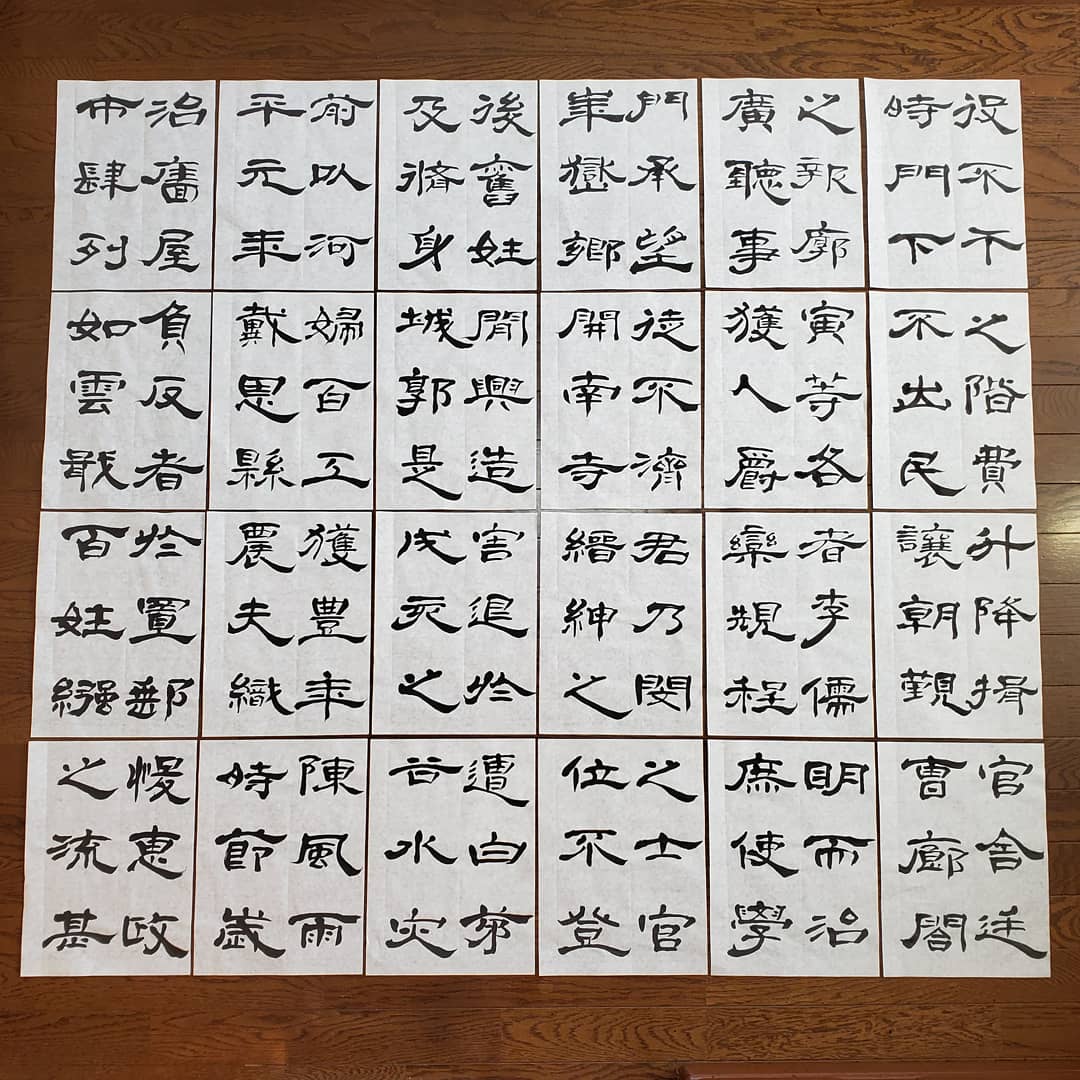 慢惠政
之流甚
於置郵
百姓繈
負反者
如雲戢
治廧屋
市肆列
陳風雨
時節歲
獲豐年
農夫織
婦百工
戴恩縣
前以河
平元年
遭白茅
谷水灾
害退於
戌亥之
間興造
城郭是
後舊姓
及脩身
之士官
位不登
君乃閔
縉紳之
徒不濟
開南寺
門承望
華嶽鄉
明而治
庶使學
者李儒
欒規程
寅等各
獲人爵
之報廓
廣聽事
官舍廷
曹廊閤
升降揖
讓朝覲
之階費
不出民
役不干
時門下